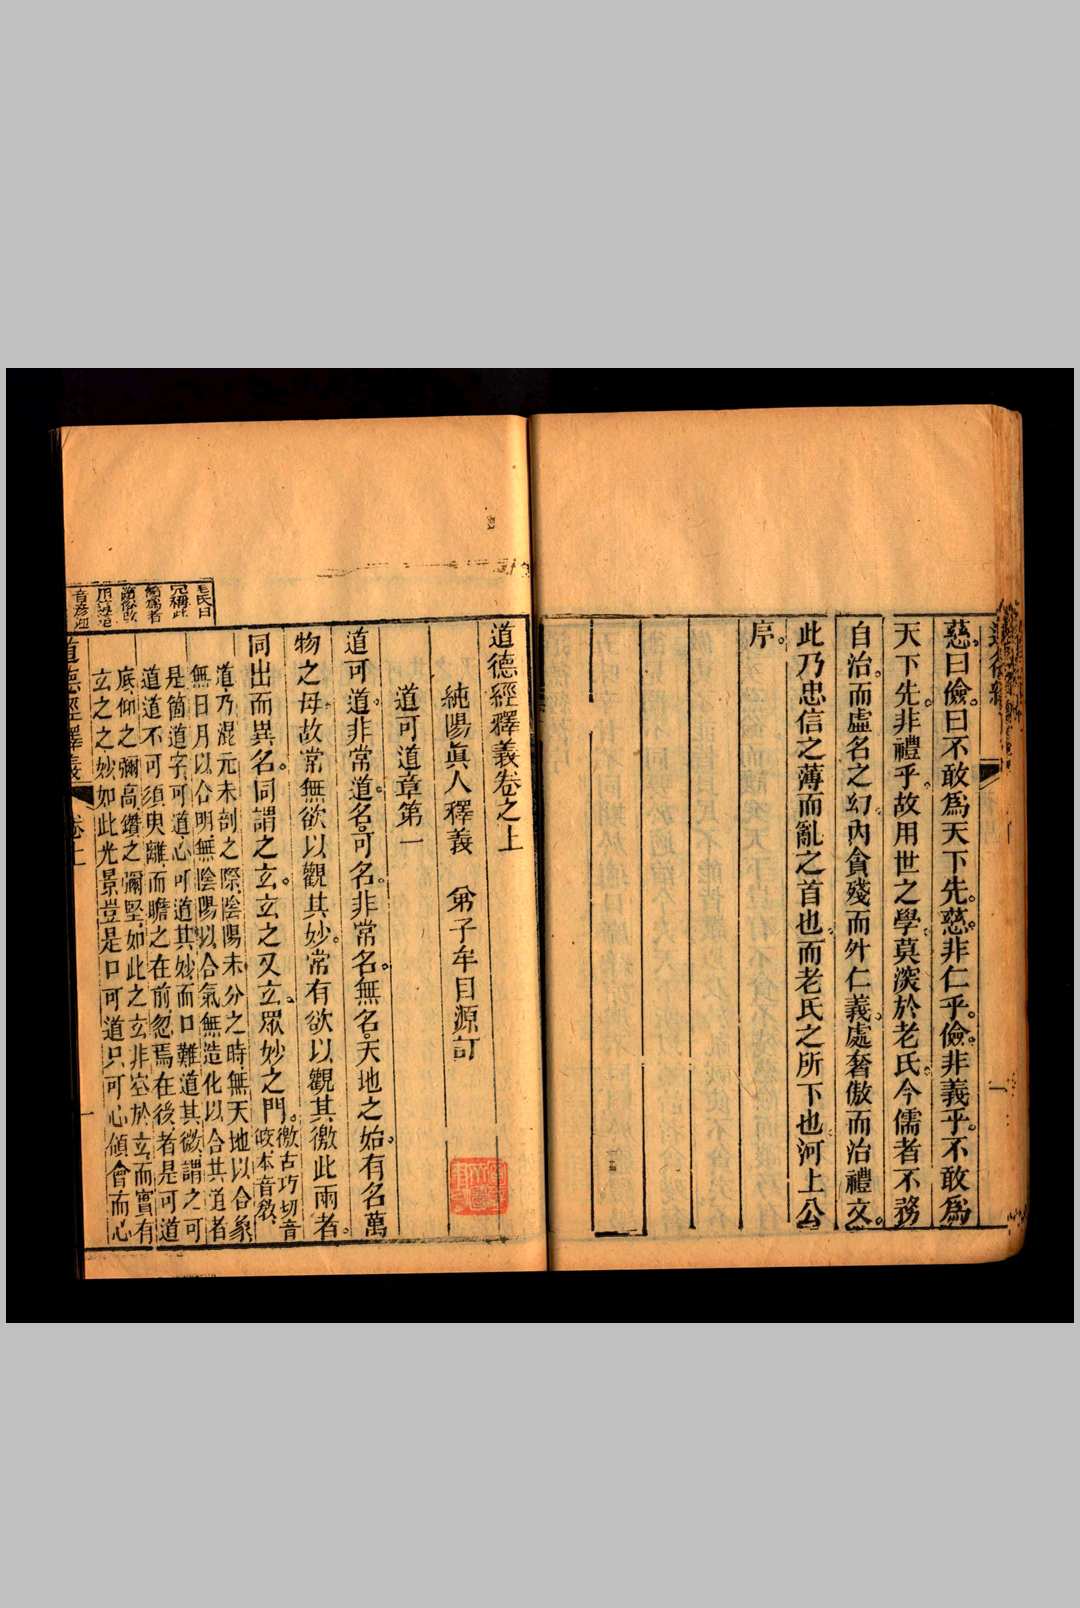 慈。曰儉。曰不敢爲天下先。慈。非仁乎。儉。非義乎。不敢爲
天下先。非禮乎。故用世之學。莫深於老氏。今儒者不務
自治。而虛名之幻。內貪殘而外仁義。處奢傲而治禮文。
此乃忠信之薄而亂之首也。而老氏之所下也。河上公
序。
道德經釋義卷之上
純陽眞人釋義　弟子牟目源訂
道可道章第一
道可道。非常道。名。可名。非常名。無名。天地之始。有名萬
物之母。故常無欲以觀其妙。常有欲以觀其徼。此兩者。
同出而異名。同謂之玄。玄之又玄。眾妙之門。徼古巧切音
皎本音敎
道乃混元未剖之際陰陽未分之時無天地以合象
無日月以合明無陰陽以合氣無造化以合其道者
是箇道字可道心可道其妙而口難道其微謂之可
道道不可須臾離而瞻之在前忽焉在後者是可道
底仰之彌高鑽之彌堅如此之玄非空於玄而實有
玄之之妙如此光景豈是口可道只可心傾會而心
道德經釋義　卷上　一